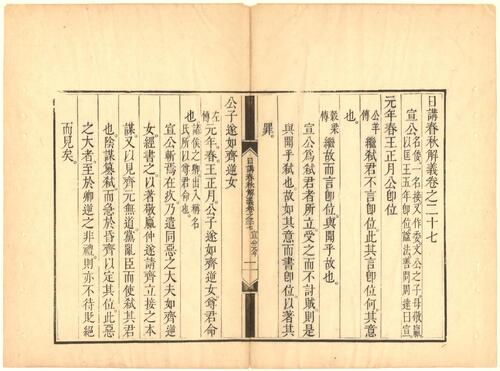 日講春秋解義卷之二十七
宣公名倭一名接又作委文公之子母敬嬴
以匡王五年即位謚法善問周達曰宣
元年春王正月公即位
公羊傳繼弑君不言即位此其言即位何其意
也
穀梁傳繼故而言即位與聞乎故也
宣公爲弑君者所立受之而不討賊則是
與聞乎弑也故如其意而書即位以著其
罪
日講春秋解義卷之二十七
宣公元年
一
公子遂如齊逆女
左傳元年春王正月公子遂如齊逆女尊君命
也諸侯之卿出入稱名
氏所以尊君命也
宣公斬焉在疚乃遣同惡之大夫如齊逆
女經書之以著敬嬴仲遂請齊立接之本
謀又以見齊元無道黨亂臣而使弑其君
也陰謀篡弑而急於昏齊以定其位此惡
之大者至於卿逆之非禮則亦不待貶絕
而見矣